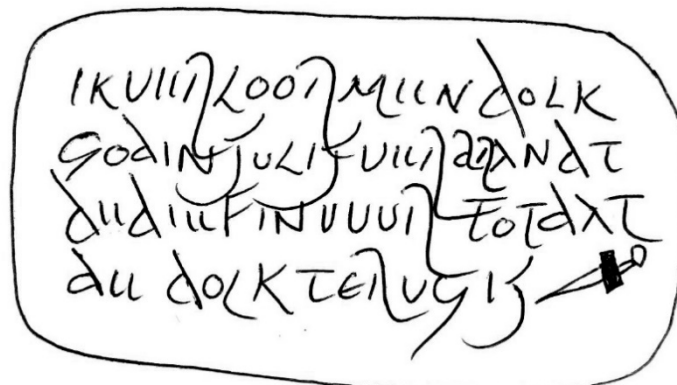 IK VERLOOR MIIN DOLK
GODIN SULIS VERBRANDT
DE DIEF IN VUUR TOTDAT
DE DOLK TERUG IS